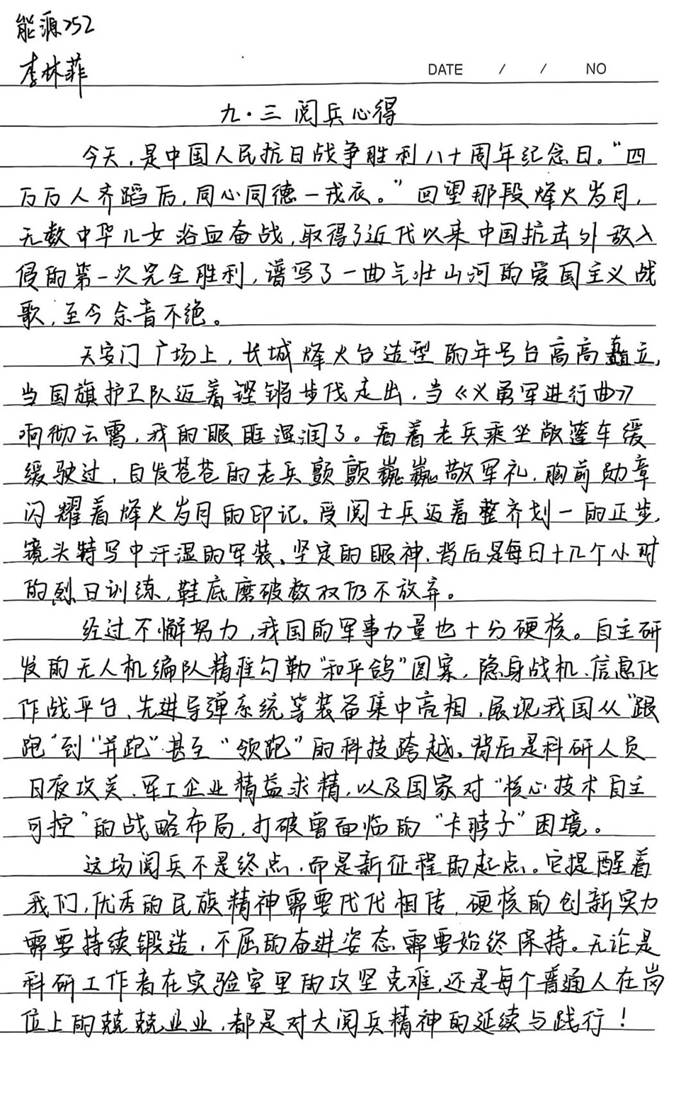 能源252
李林菲
DATE / / NO
九·三阅兵心得
今天，是中国人民抗日战争胜利八十周年纪念日。“四
万万人齐蹈厉，同心同德一戎衣。”回望那段烽火岁月，
无数中华儿女浴血奋战，取得了近代以来中国抗击外敌入
侵的第一次完全胜利，谱写了一曲气壮山河的爱国主义战
歌，至今余音不绝。
天安门广场上，长城烽火台造型的年号台高高矗立，
当国旗护卫队迈着铿锵步伐走出，当《义勇军进行曲》
响彻云霄，我的眼眶湿润了。看着老兵乘坐敞篷车缓
缓驶过，白发苍苍的老兵颤颤巍巍敬军礼，胸前勋章
闪耀着烽火岁月的印记。受阅士兵迈着整齐划一的正步，
镜头特写中汗湿的军装、坚定的眼神，背后是每日十几个小时
的烈日训练，鞋底磨破数双仍不放弃。
经过不懈努力，我国的军事力量也十分硬核。自主研
发的无人机编队精准勾勒“和平鸽”图案，隐身战机、信息化
作战平台、先进导弹系统等装备集中亮相，展现我国从“跟
跑”到“并跑”甚至“领跑”的科技跨越。背后是科研人员
日夜攻关、军工企业精益求精，以及国家对“核心技术自主
可控”的战略布局，打破曾面临的“卡脖子”困境。
这场阅兵不是终点，而是新征程的起点。它提醒着
我们，优秀的民族精神需要代代相传 硬核的创新实力
需要持续锻造，不屈的奋进姿态需要始终保持。无论是
科研工作者在实验室里的攻坚克难，还是每个普通人在岗
位上的兢兢业业，都是对大阅兵精神的延续与践行！